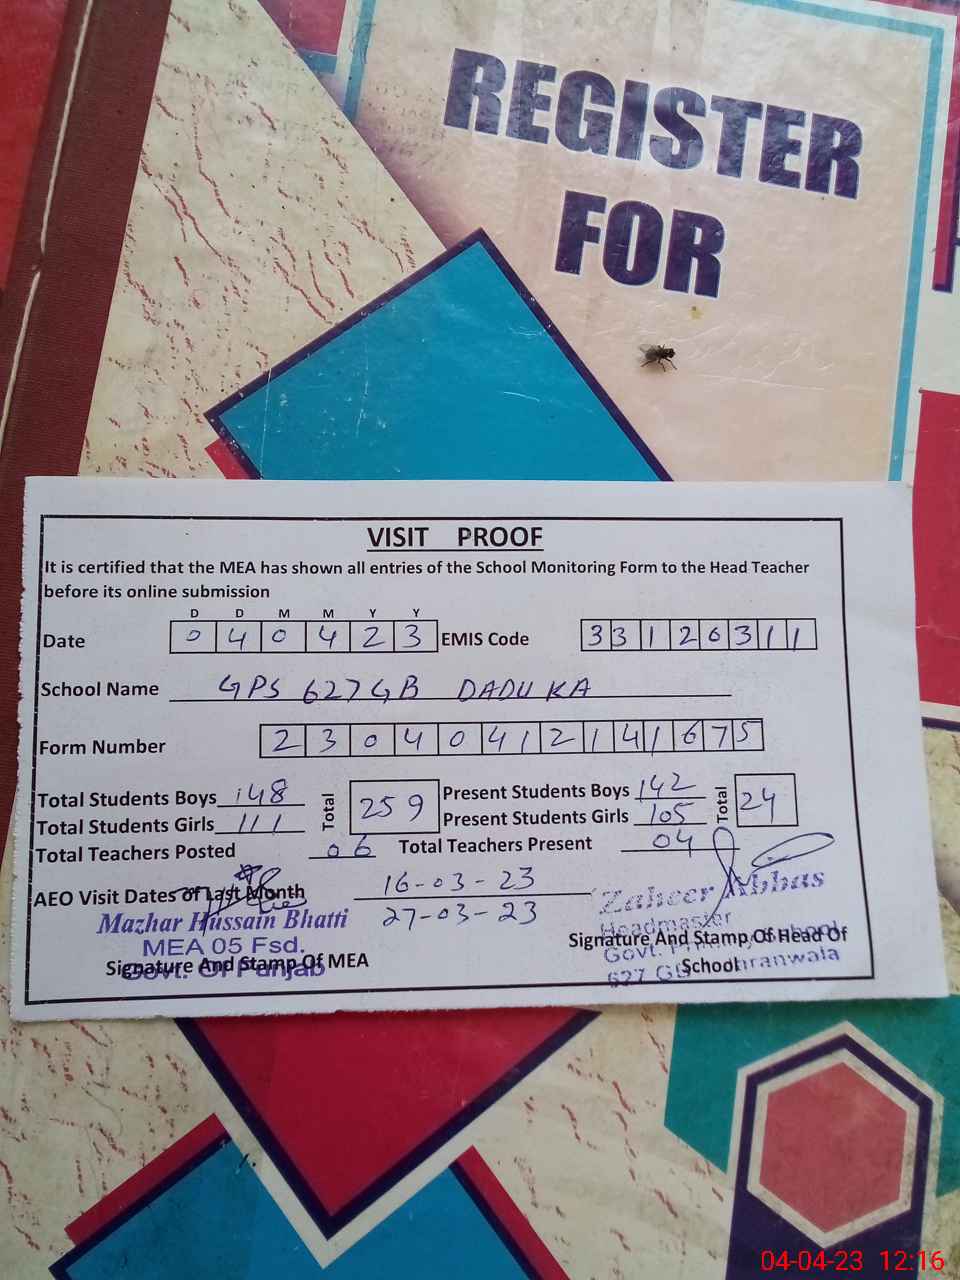 REGISTER
FOR
VISIT PROOF
It is certified that the MEA has shown all entries of the School Monitoring Form to the Head Teacher
before its online submission
D D M M Y Y
Date 0 4 0 4 2 3 EMIS Code 3 3 1 2 6 3 1 1
School Name GPS 627 GB DADUKA
Form Number 2 3 0 4 0 4 1 2 1 4 1 6 7 5
Total Students Boys 148 Total 259 Present Students Boys 142 Total 24
Total Students Girls 111 Present Students Girls 105
Total Teachers Posted 06 Total Teachers Present 04
AEO Visit Dates of Last Month 16-03-23
27-03-23
Mazhar Hussain Bhatti
MEA 05 Fsd.
Govt. Of Punjab
Signature And Stamp Of MEA
Zaheer Abbas
Headmaster
Govt. Primary School
627 GB
Signature And Stamp Of Head Of
School
04-04-23 12:16